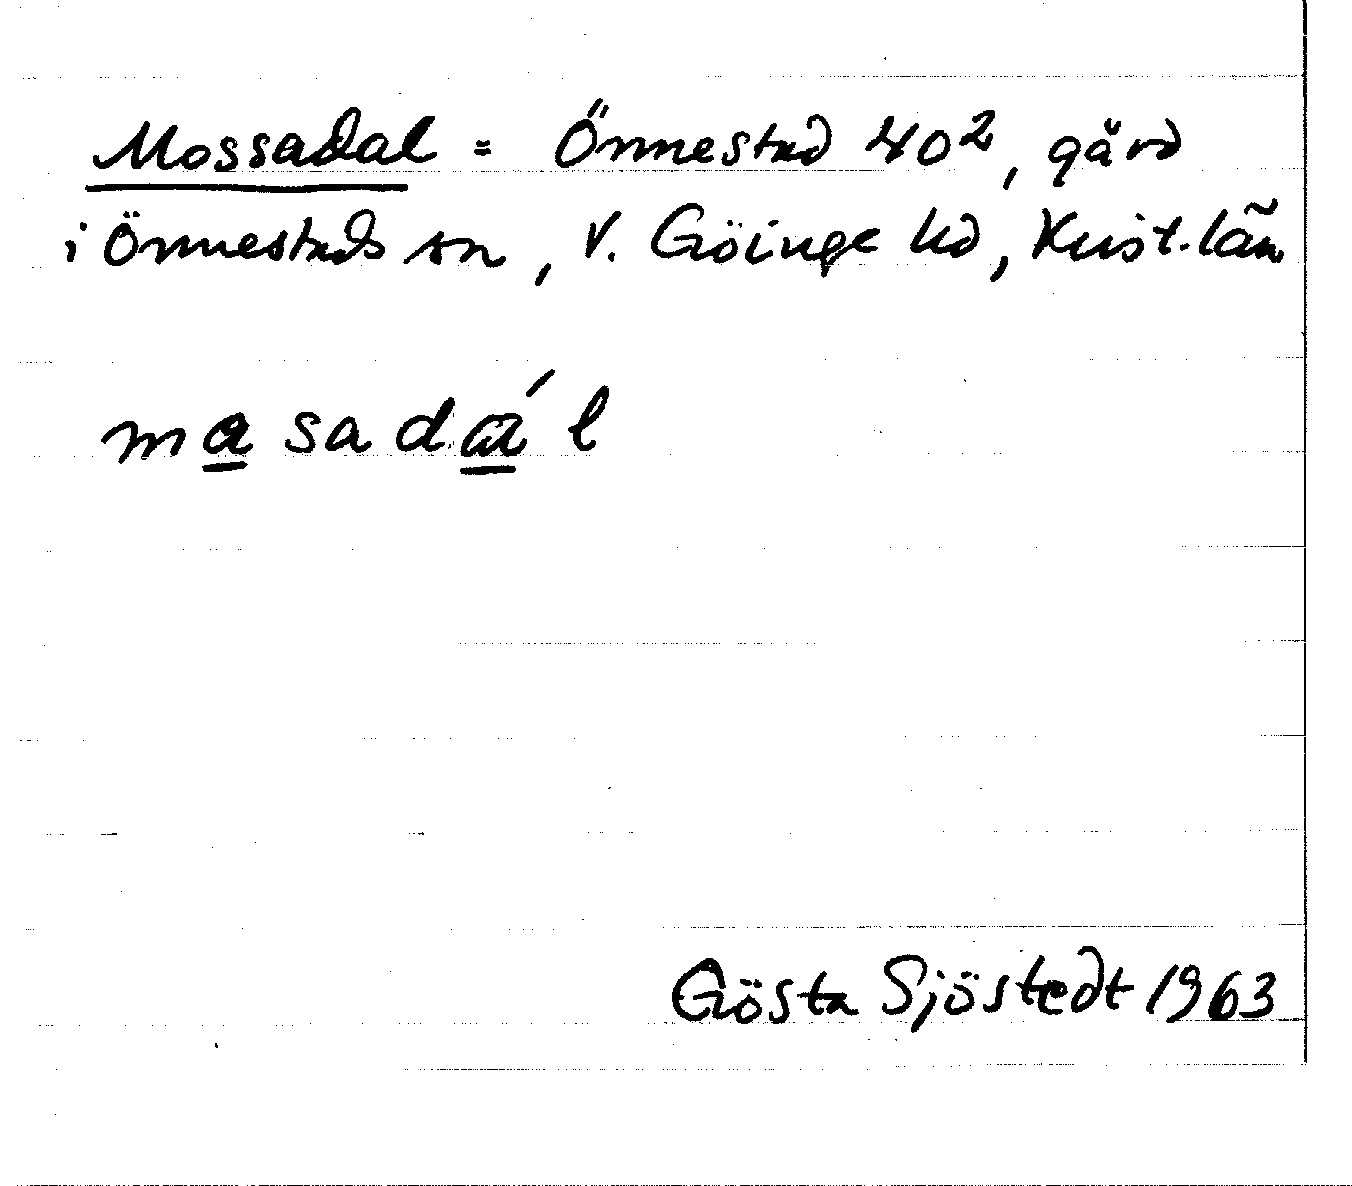 Mossadal = Önnestad 40², gård
i Önnestads sn, V. Göinge hd, Krist. län
masadaál
Gösta Sjöstedt 1963